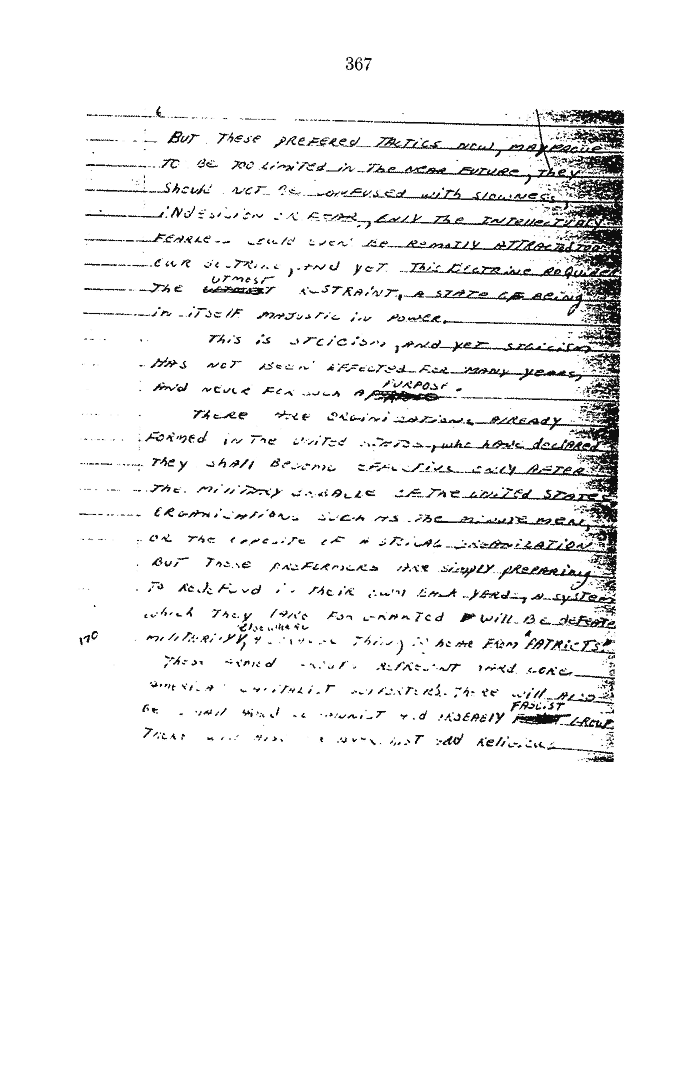 367
6
BUT These PREFERED TACTICS NOW, MAY PROVE
TO BE TOO LIMITED IN The NEAR FUTURE, They
Should NOT BE CONFUSED with SLOWNESS,
INDESISION OR FEAR, ONLY The INTELLECTUALLY
FEARLESS COULD EVEN BE REMOTLY ATTRACTED TOO
OUR DOCTRINE, AND yeT This DOCTRINE REQUIRES
UTMOST
The RESTRAINT, A STATE OF BEING
IN ITSELF MAJUSTIC IN POWER.
This is STOICISM, AND yet STOICISM
HAS NOT BEEN AFFECTED FOR MANY YEARS,
PURPOSE.
AND NEVER FOR SUCH A
There ARE ORGINIZATIONS ALREADY
FORMED IN The UNITED STATES, who have declared
They shall BECOME EFFECTIVE ONLY AFTER
The MILITARY DEBACLE OF The UNITED STATES,
ORGANIZATIONS SUCH AS The MINUTE MEN,
OR THE OPPOSITE OF A STOICAL ORGANIZATION
BUT These PREFORMERS ARE SIMPLY PREPARING
TO REDEFEND in Their OWN BACK YARD, A SYSTEM
which They TAKE FOR GRANTED will BE defeated
elsewhere
170 MILITARILY, A Thing To hear FROM "PATRIOTS"
These ARMED GROUPS REPRESENT hard CORE
AMERICAN CAPITALIST SUPPORTERS. There will Also
FASCIST
BE small ARMED COMMUNIST AND PROBABLY GROUPS
There will Also and Religious